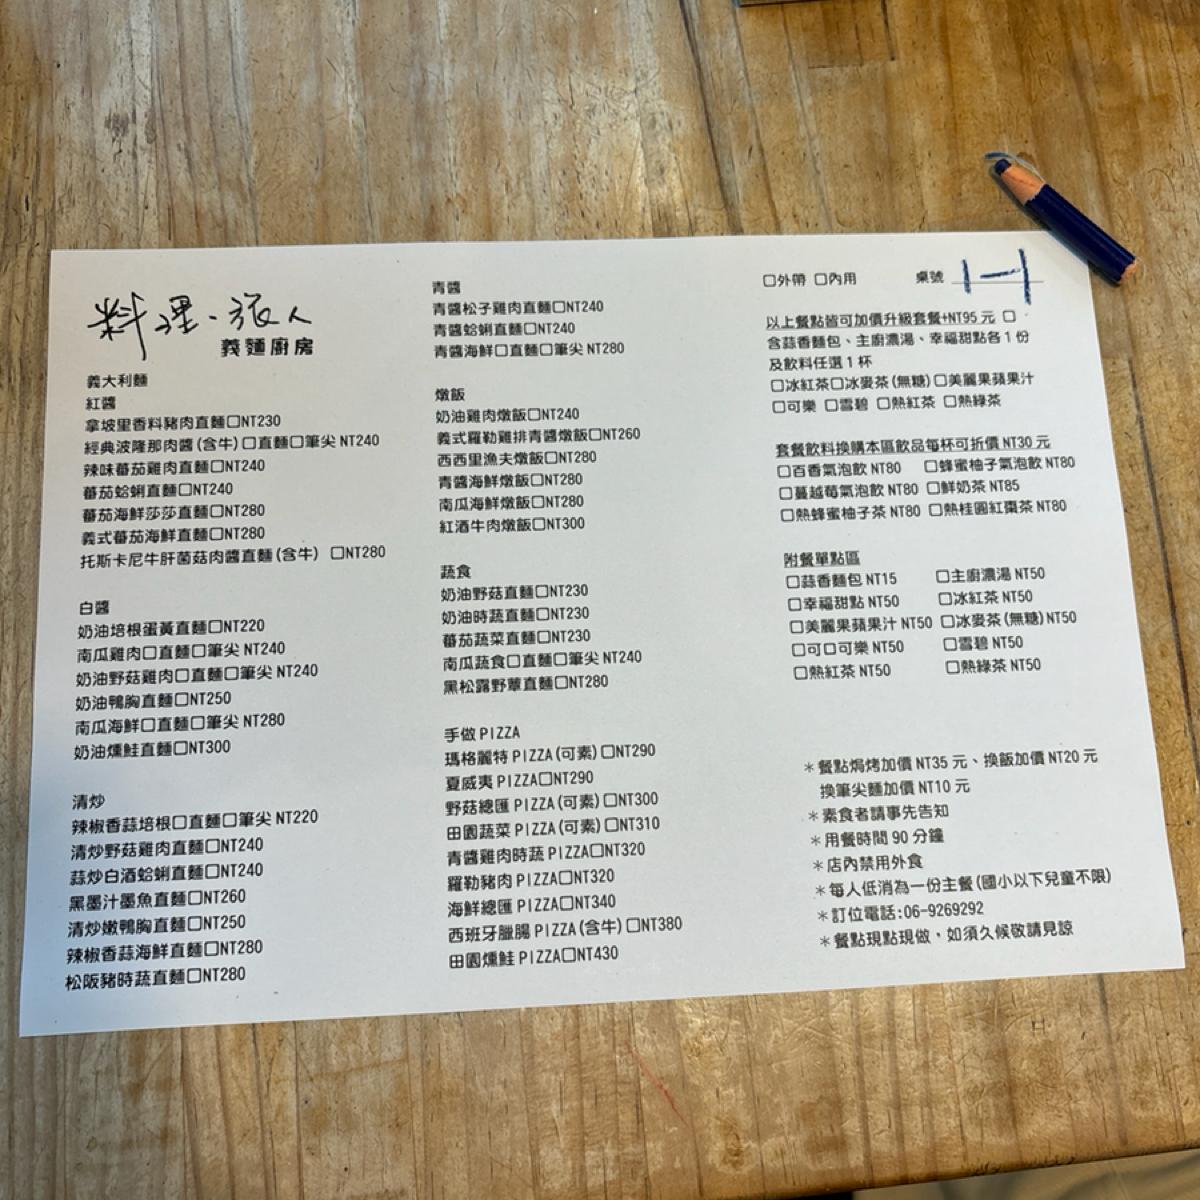 料理·旅人
義麵廚房
義大利麵
紅醬
拿坡里香料豬肉直麵□NT230
經典波隆那肉醬(含牛)□直麵□筆尖 NT240
辣味蕃茄雞肉直麵□NT240
蕃茄蛤蜊直麵□NT240
蕃茄海鮮莎莎直麵□NT280
義式蕃茄海鮮直麵□NT280
托斯卡尼牛肝菌菇肉醬直麵(含牛) □NT280
白醬
奶油培根蛋黃直麵□NT220
南瓜雞肉□直麵□筆尖 NT240
奶油野菇雞肉□直麵□筆尖 NT240
奶油鴨胸直麵□NT250
南瓜海鮮□直麵□筆尖 NT280
奶油燻鮭直麵□NT300
清炒
辣椒香蒜培根□直麵□筆尖 NT220
清炒野菇雞肉直麵□NT240
蒜炒白酒蛤蜊直麵□NT240
黑墨汁墨魚直麵□NT260
清炒嫩鴨胸直麵□NT250
辣椒香蒜海鮮直麵□NT280
松阪豬時蔬直麵□NT280
青醬
青醬松子雞肉直麵□NT240
青醬蛤蜊直麵□NT240
青醬海鮮□直麵□筆尖 NT280
燉飯
奶油雞肉燉飯□NT240
義式羅勒雞排青醬燉飯□NT260
西西里漁夫燉飯□NT280
青醬海鮮燉飯□NT280
南瓜海鮮燉飯□NT280
紅酒牛肉燉飯□NT300
蔬食
奶油野菇直麵□NT230
奶油時蔬直麵□NT230
蕃茄蔬菜直麵□NT230
南瓜蔬食□直麵□筆尖 NT240
黑松露野蕈直麵□NT280
手做 PIZZA
瑪格麗特 PIZZA(可素) □NT290
夏威夷 PIZZA□NT290
野菇總匯 PIZZA(可素) □NT300
田園蔬菜 PIZZA(可素) □NT310
青醬雞肉時蔬 PIZZA□NT320
羅勒豬肉 PIZZA□NT320
海鮮總匯 PIZZA□NT340
西班牙臘腸 PIZZA(含牛) □NT380
田園燻鮭 PIZZA□NT430
□外帶 □內用 桌號 1-1
以上餐點皆可加價升級套餐+NT95 元 □
含蒜香麵包、主廚濃湯、幸福甜點各 1 份
及飲料任選 1 杯
□冰紅茶□冰麥茶(無糖)□美麗果蘋果汁
□可樂 □雪碧 □熱紅茶 □熱綠茶
套餐飲料換購本區飲品每杯可折價 NT30 元
□百香氣泡飲 NT80 □蜂蜜柚子氣泡飲 NT80
□蔓越莓氣泡飲 NT80 □鮮奶茶 NT85
□熱蜂蜜柚子茶 NT80 □熱桂圓紅棗茶 NT80
附餐單點區
□蒜香麵包 NT15 □主廚濃湯 NT50
□幸福甜點 NT50 □冰紅茶 NT50
□美麗果蘋果汁 NT50 □冰麥茶(無糖)NT50
□可口可樂 NT50 □雪碧 NT50
□熱紅茶 NT50 □熱綠茶 NT50
＊餐點焗烤加價 NT35 元、換飯加價 NT20 元
換筆尖麵加價 NT10 元
＊素食者請事先告知
＊用餐時間 90 分鐘
＊店內禁用外食
＊每人低消為一份主餐(國小以下兒童不限)
＊訂位電話:06-9269292
＊餐點現點現做，如須久候敬請見諒